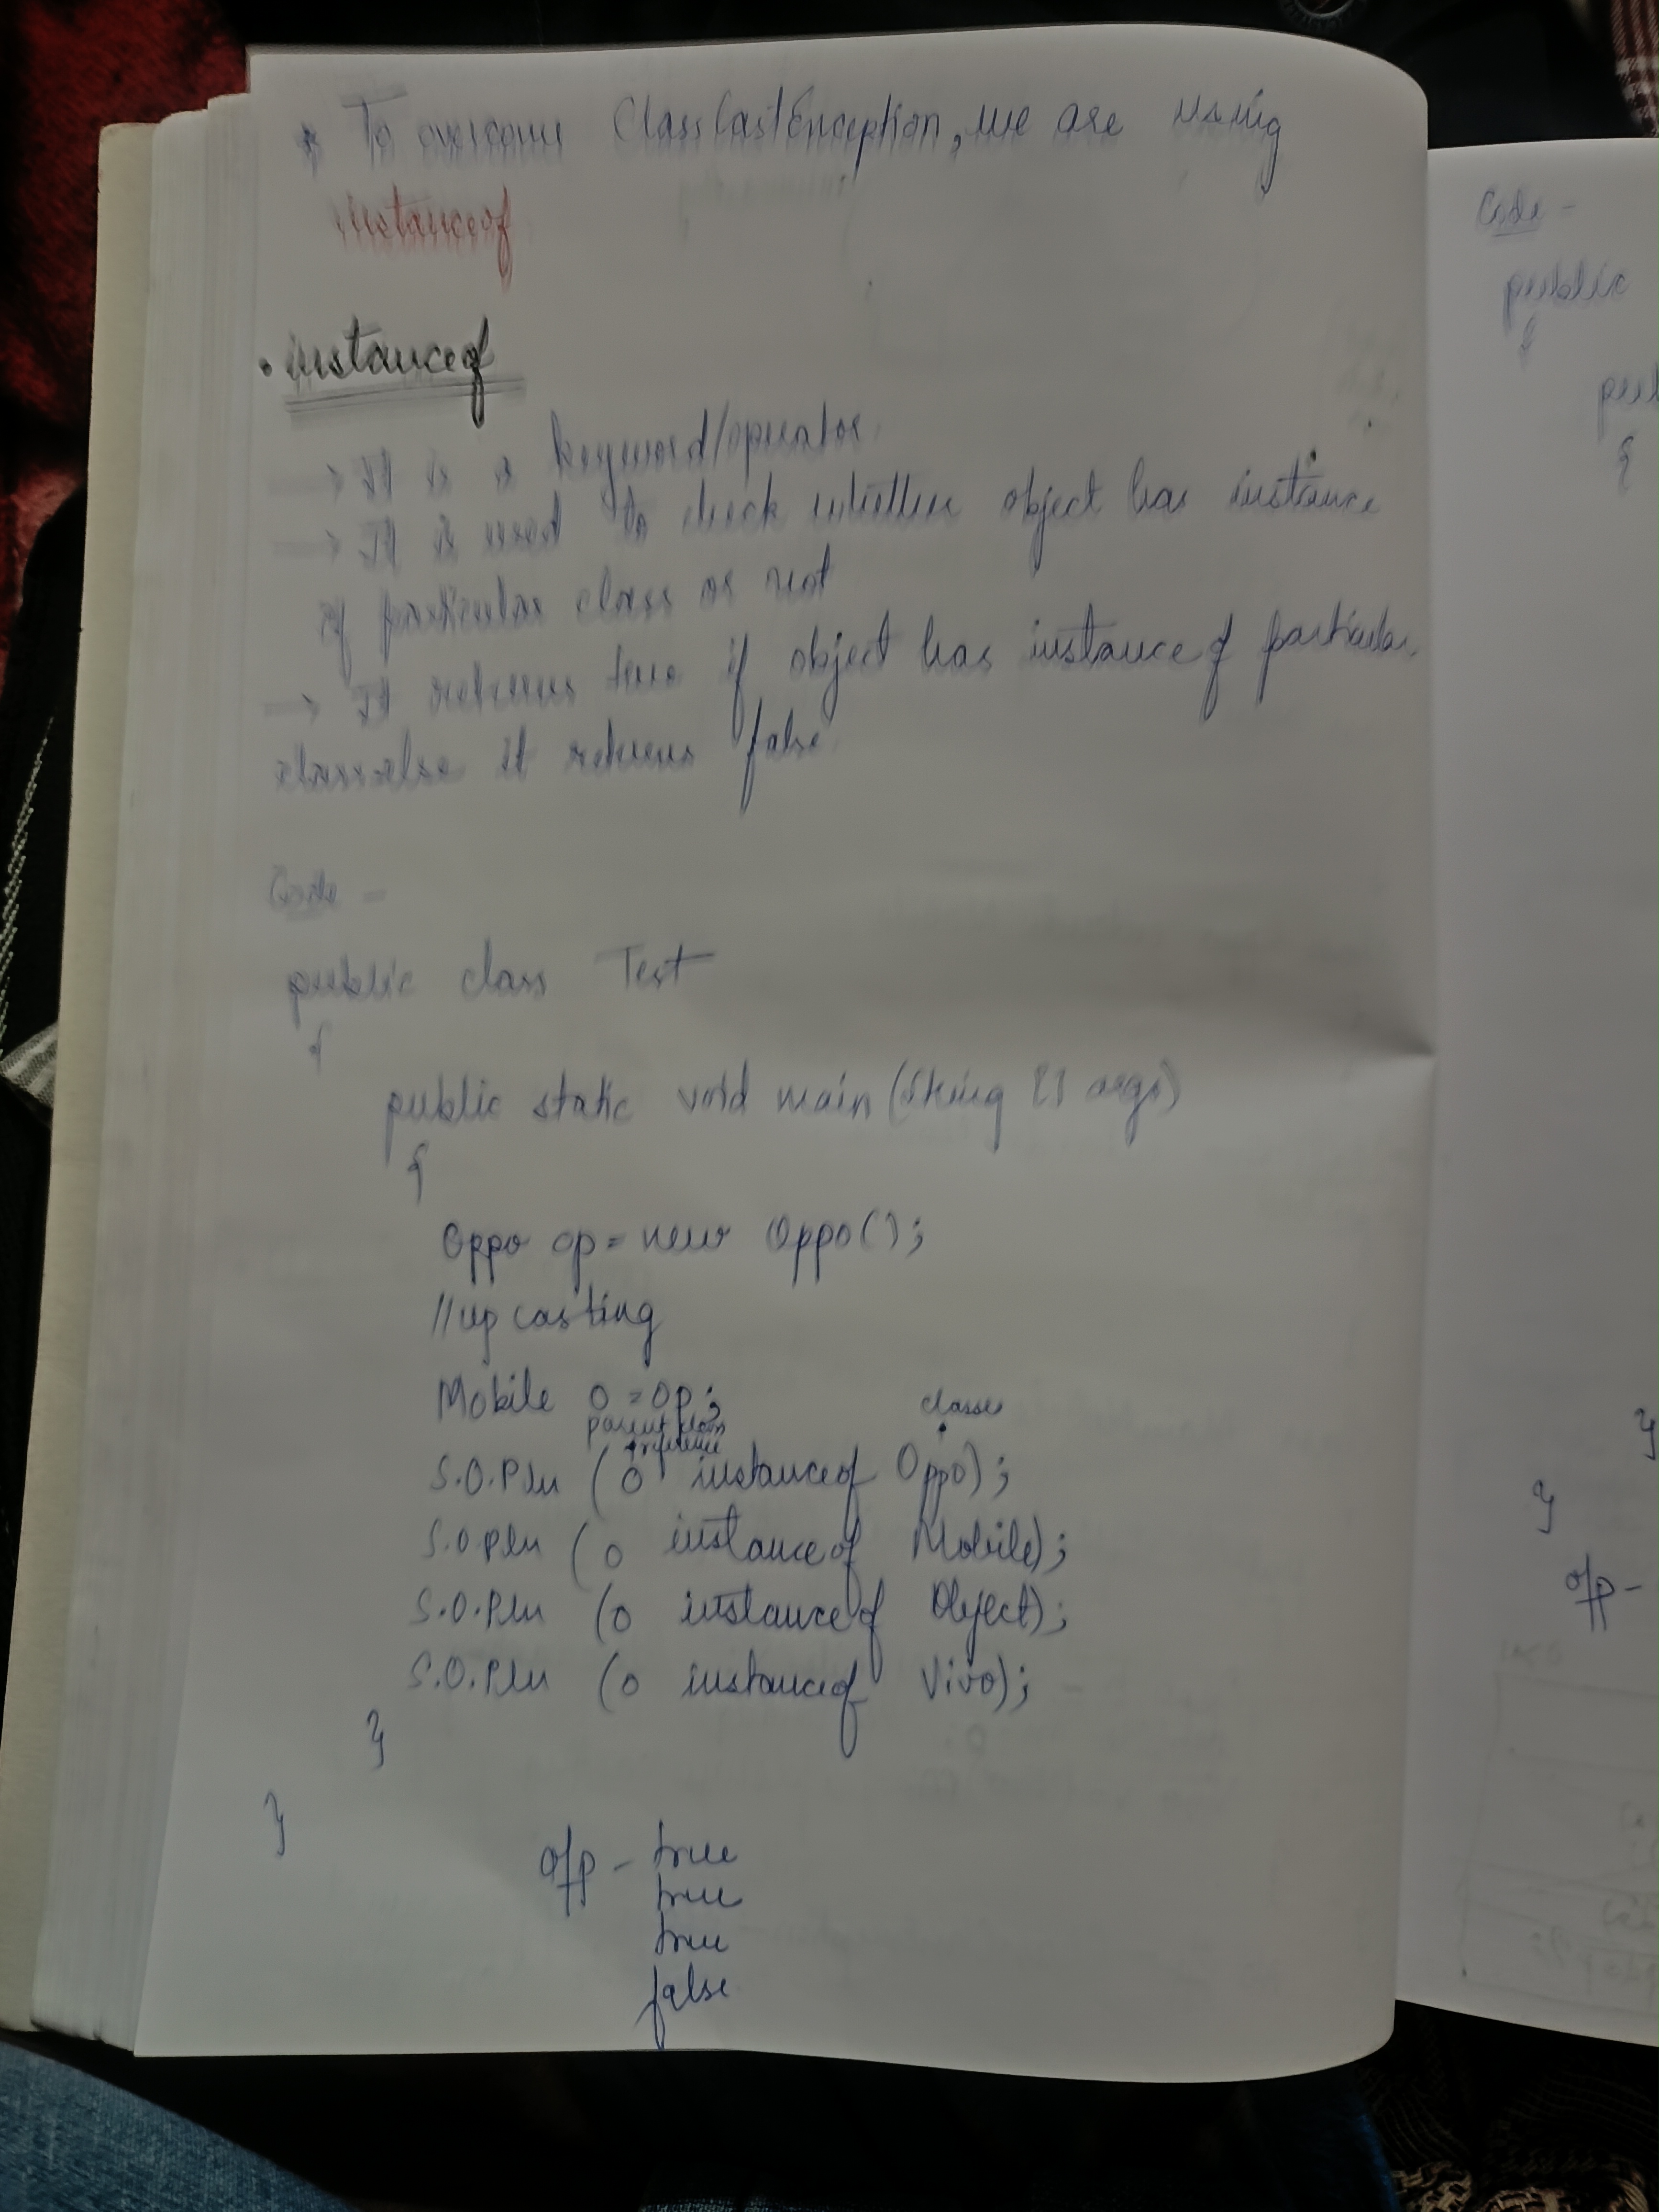 * To overcome ClassCastException, we are using
instanceof
• instanceof
→ It is a keyword/operator
→ It is used to check whether object has instance
of particular class or not
→ It returns true if object has instance of particular
class else it returns false
Code -
public class Test
{
public static void main (String [] args)
{
Oppo op = new Oppo();
//up casting
Mobile o = op;
classes
parent class
reference
S.O.Pln (o instanceof Oppo);
S.O.Pln (o instanceof Mobile);
S.O.Pln (o instanceof Object);
S.O.Pln (o instanceof Vivo);
}
}
o/p - true
true
true
false
Code -
public
{
}
}
o/p -